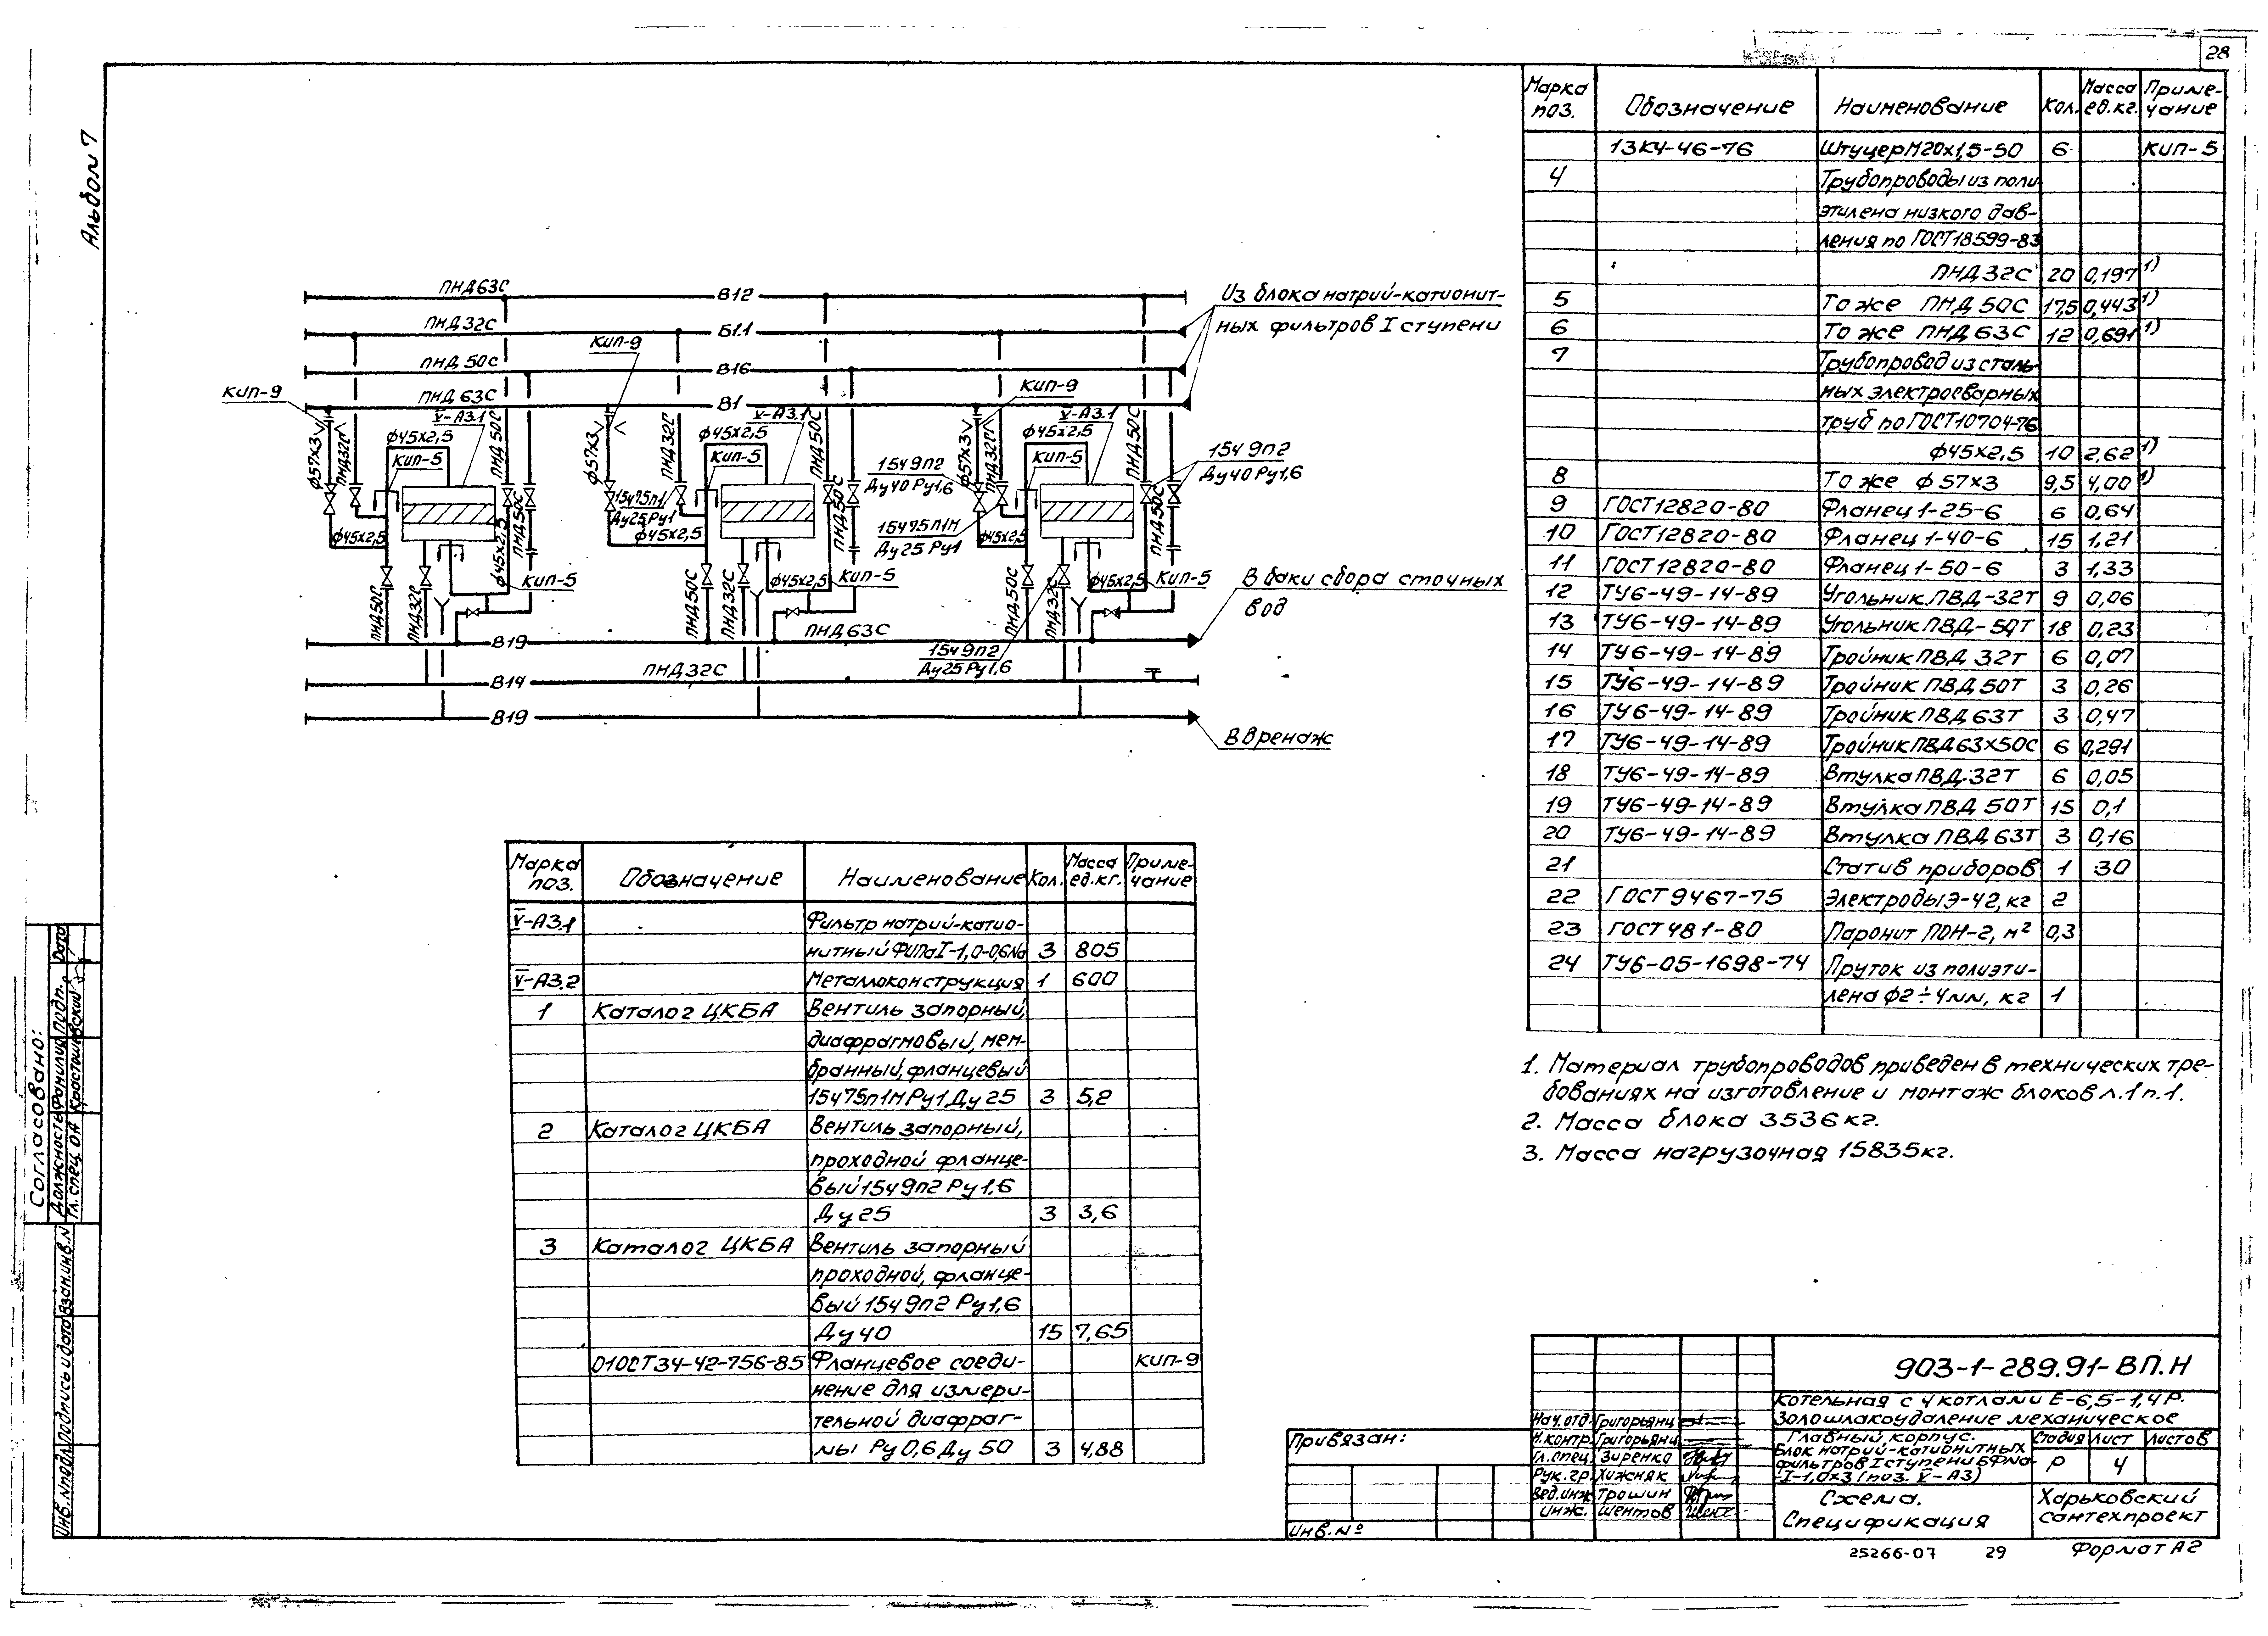 28
Альбом 7
ПНД63С
В12
Из блока натрий-катионит-
ных фильтров I ступени
ПНД32С
Б1.1
КИП-9
ПНД50С
В16
КИП-9
ПНД63С
В1
КИП-9
V-А3.1
V-А3.1
V-А3.1
ф45х2,5
ф45х2,5
ф45х2,5
КИП-5
КИП-5
КИП-5
ф57х3
ПНД32С
ПНД50С
ф57х3
ПНД32С
ПНД50С
ф57х3
ПНД32С
ПНД50С
15ч9п2
Ду40Ру1,6
15ч9п2
Ду40Ру1,6
15ч75п1
Ду25Ру1
15ч75п1м
Ду25Ру1
ф45х2,5
ф45х2,5
ф45х2,5
ф45х2,5
ПНД50С
ПНД50С
ПНД50С
КИП-5
ф45х2,5
КИП-5
ф45х2,5
КИП-5
ПНД50С
ПНД32С
ПНД50С
ПНД32С
ПНД50С
ПНД32С
В баки сбора сточных
вод
В19
ПНД63С
15ч9п2
Ду25Ру1,6
В14
ПНД32С
В19
В дренаж
Марка поз. Обозначение Наименование Кол. Масса ед.кг. Приме-чание
13К4-46-76 Штуцер М20х1,5-50 6 КИП-5
4 Трубопроводы из поли
этилена низкого дав-
ления по ГОСТ18599-83
ПНД32С 20 0,197 1)
5 То же ПНД50С 17,5 0,443 1)
6 То же ПНД63С 12 0,691 1)
7 Трубопровод из сталь-
ных электросварных
труб по ГОСТ10704-76
ф45х2,5 10 2,62 1)
8 То же ф57х3 9,5 4,00 1)
9 ГОСТ12820-80 Фланец 1-25-6 6 0,64
10 ГОСТ12820-80 Фланец 1-40-6 15 1,21
11 ГОСТ12820-80 Фланец 1-50-6 3 1,33
12 ТУ6-49-14-89 Угольник ПВД-32Т 9 0,06
13 ТУ6-49-14-89 Угольник ПВД-50Т 18 0,23
14 ТУ6-49-14-89 Тройник ПВД 32Т 6 0,07
15 ТУ6-49-14-89 Тройник ПВД 50Т 3 0,26
16 ТУ6-49-14-89 Тройник ПВД 63Т 3 0,47
17 ТУ6-49-14-89 Тройник ПВД 63х50С 6 0,291
18 ТУ6-49-14-89 Втулка ПВД 32Т 6 0,05
19 ТУ6-49-14-89 Втулка ПВД 50Т 15 0,1
20 ТУ6-49-14-89 Втулка ПВД 63Т 3 0,16
21 Статив приборов 1 30
22 ГОСТ 9467-75 Электроды Э-42, кг 2
23 ГОСТ 481-80 Паронит ПОН-2, м² 0,3
24 ТУ6-05-1698-74 Пруток из полиэти-
лена ф2÷4мм, кг 1
1. Материал трубопроводов приведен в технических тре-
бованиях на изготовление и монтаж блоков л.1 п.1.
2. Масса блока 3536кг.
3. Масса нагрузочная 15835кг.
Марка поз. Обозначение Наименование Кол. Масса ед.кг. Приме-чание
V-А3.1 Фильтр натрий-катио-
нитный ФИПаI-1,0-0,6Na 3 805
V-А3.2 Металлоконструкция 1 600
1 Каталог ЦКБА Вентиль запорный,
диафрагмовый, мем-
бранный, фланцевый
15ч75п1м Ру1 Ду25 3 5,2
2 Каталог ЦКБА Вентиль запорный,
проходной фланце-
вый 15ч9п2 Ру1,6
Ду25 3 3,6
3 Каталог ЦКБА Вентиль запорный
проходной, фланце-
вый 15ч9п2 Ру1,6
Ду40 15 7,65
01ОСТ34-42-756-85 Фланцевое соеди- КИП-9
нение для измери-
тельной диафраг-
мы Ру0,6 Ду50 3 4,88
Согласовано:
Должность Фамилия Подп. Дата
Гл.спец. ОА Красташевский
Инв.№подл. Подпись и дата Взам.инв.№
Привязан:
Инв.№
Нач.отд. Григорьянц
Н.контр. Григорьянц
Гл.спец. Зиренко
Рук.гр. Хижняк
Вед.инж. Трошин
Инж. Шентов
903-1-289.91-ВП.Н
Котельная с 4 котлами Е-6,5-1,4Р.
Золошлакоудаление механическое
Главный корпус.
Блок натрий-катионитных
фильтров I ступени БФNa-
-I-1,0х3 (поз. V-А3)
Стадия Лист Листов
Р 4
Схема.
Спецификация
Харьковский
сантехпроект
25266-07 29 Формат А2